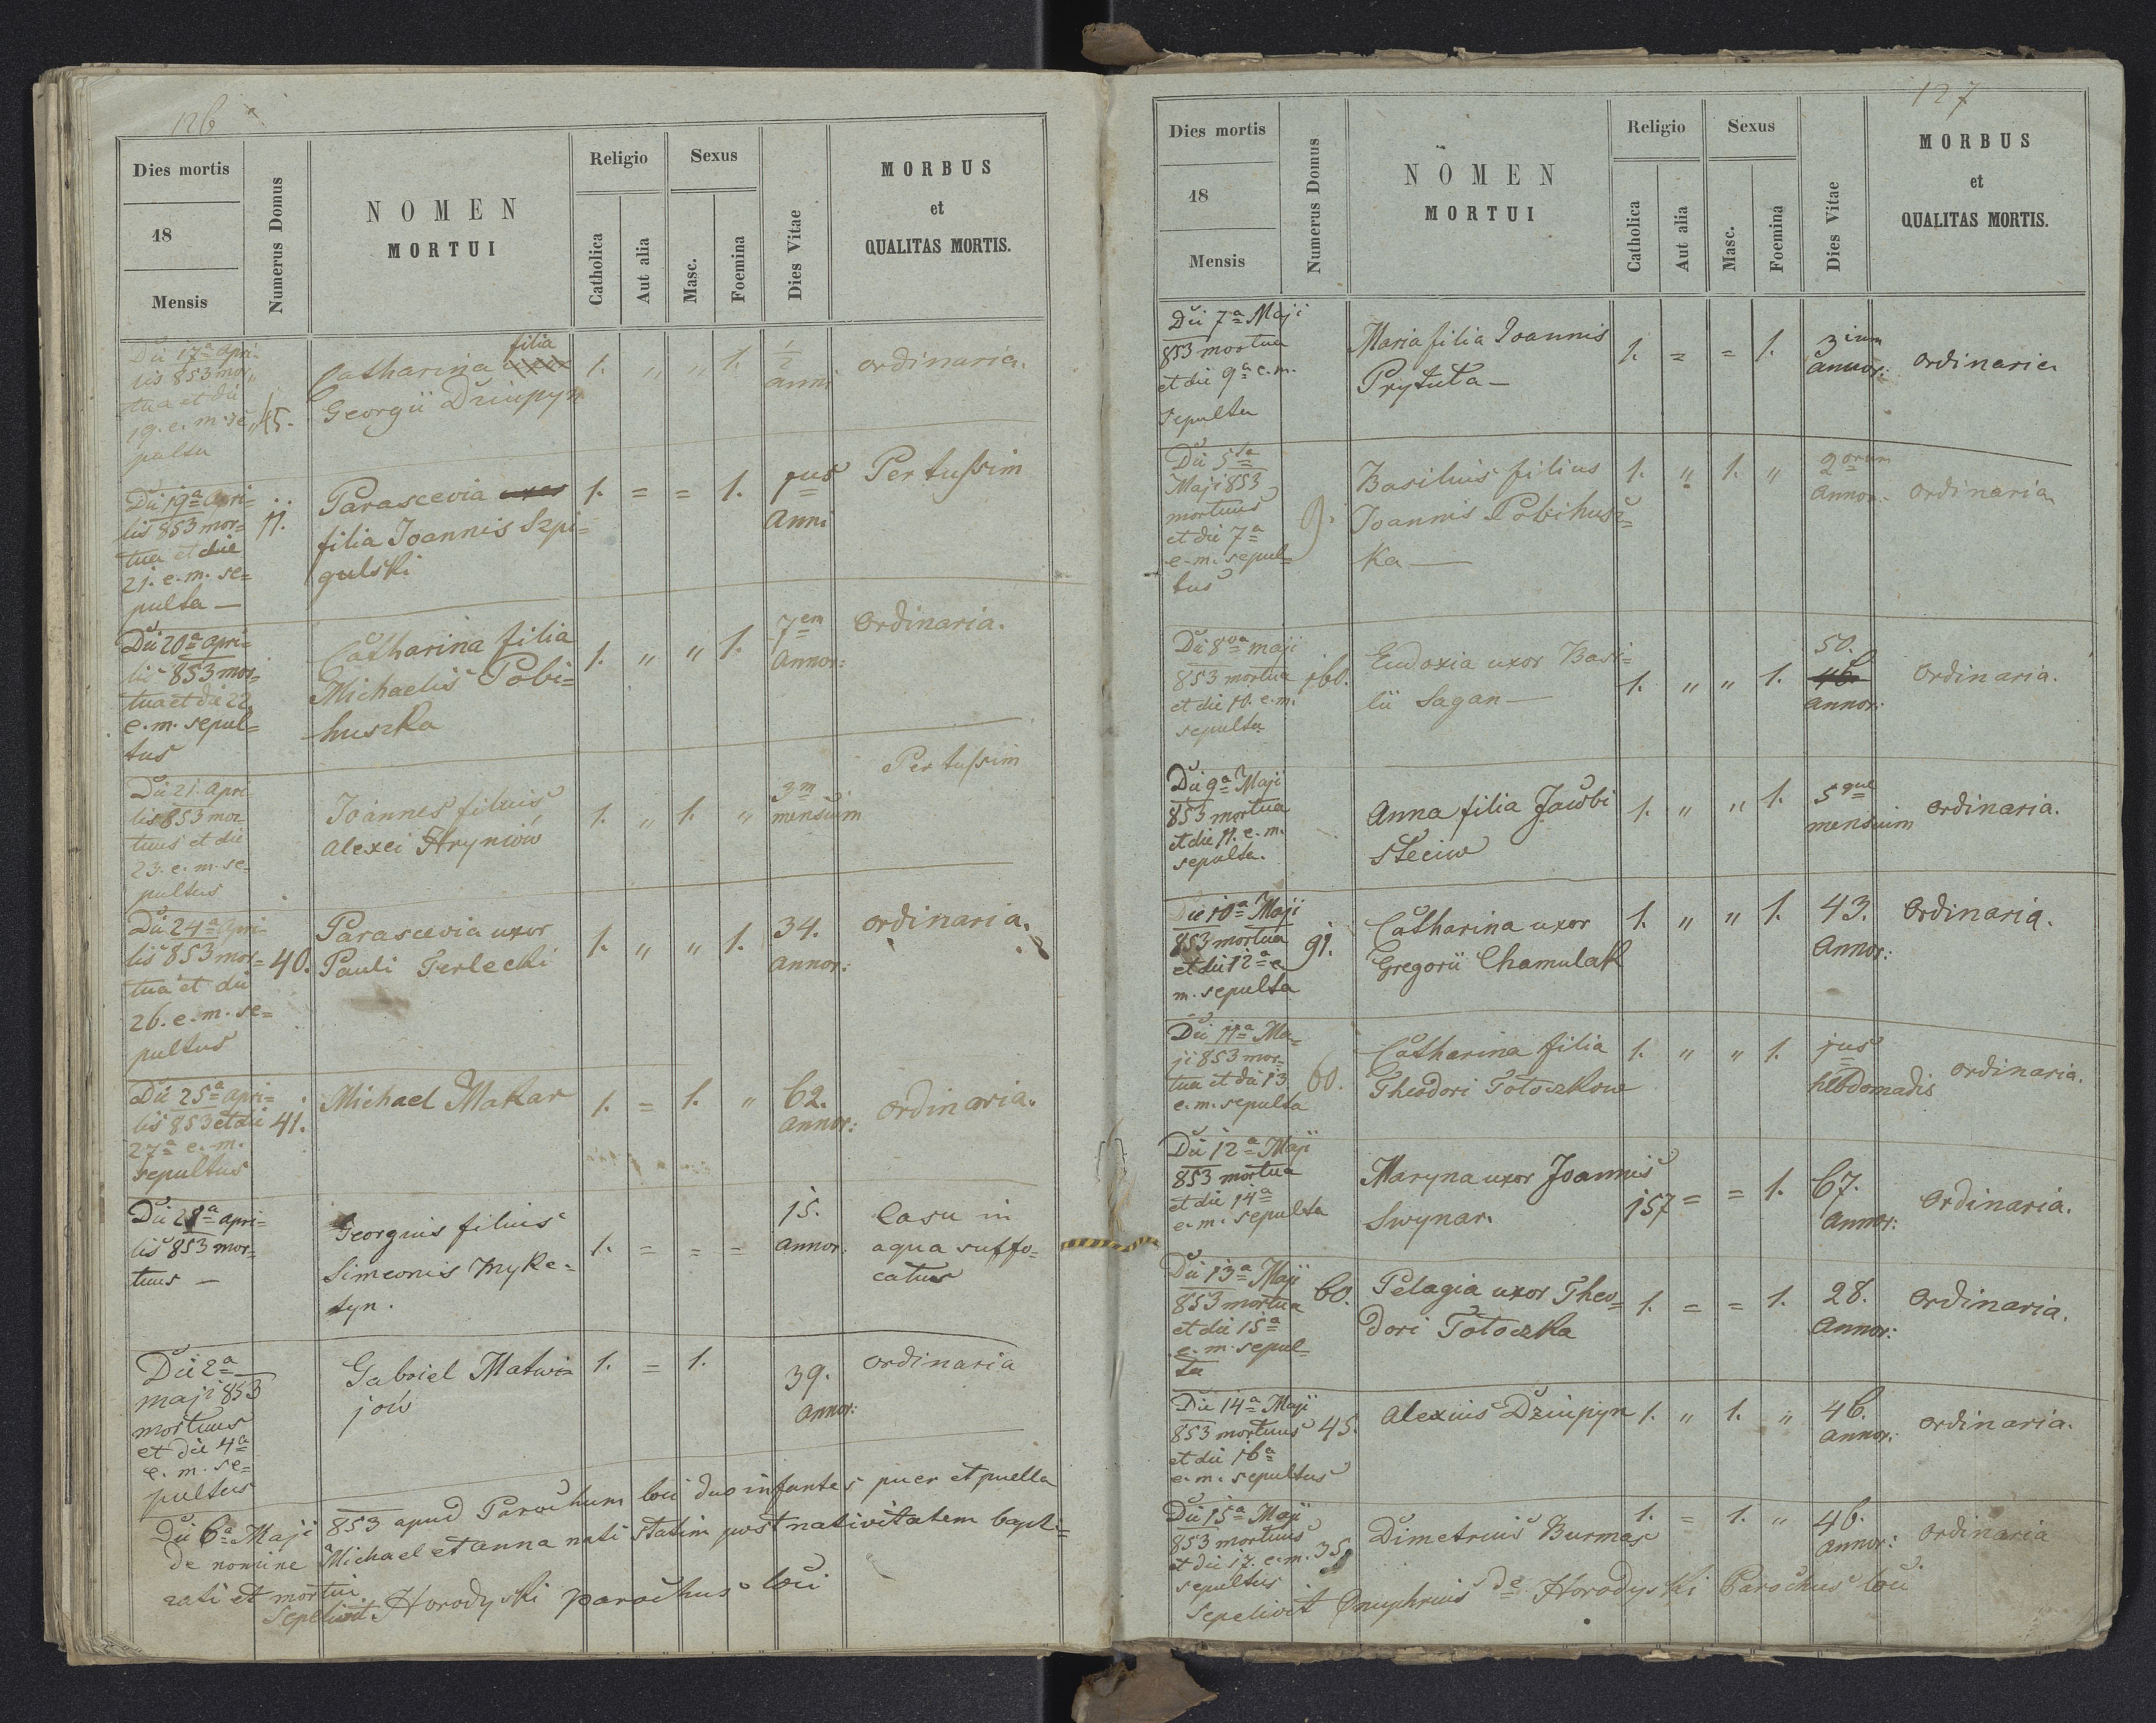 126
Dies mortis
18
Mensis
Numerus Domus
NOMEN
MORTUI
Religio
Catholica
Aut alia
Sexus
Masc.
Foemina
Dies Vitae
MORBUS
et
QUALITAS MORTIS.
Die 17ª Apri-
lis 853 mor„
tua et die
19. e. m. se„
pulta
45.
filia
Catharina
Georgii Dziupyn
1. „ „ 1.
½
anni
ordinaria.
Die 19ª Apri-
lis 853 mor-
tua et die
21. e. m. se=
pulta —
11.
Parascevia uxor
filia Joannis Szpi=
gulski
1. = = 1.
1us
Anni
Per tussim
Die 20ª Apri-
lis 853 mor=
tua et die 22.
e. m. sepul=
tus
Catharina filia
Michaelis Pobi=
huszka
1. „ „ 1.
7em
Annor:
Ordinaria.
Die 21. Apri-
lis 853 mor
tuus et die
23. e. m. se-
pultus
Joannes filius
Alexei Hryniów
1. „ 1. „
3m
mensium
Per tussim
Die 24ª Apri-
lis 853 mor=
tua et die
26. e. m. se=
pultus
40.
Parascevia uxor
Pauli Terlecki
1. „ „ 1.
34.
Annor:
ordinaria.
Die 25ª Apri=
lis 853 et die
27ª e. m.
sepultus
41.
Michael Makar
1. = 1. „
62.
Annor:
ordinaria.
Die 28ª Apri=
lis 853 mor=
tuus —
Georgius filius
Simeonis Myke=
tyn.
1. = = =
15.
Annor.
Casu in
aqua suffo=
catus
Die 2ª
Maji 853
mortuus
et die 4ª
e. m. se=
pultus
Gabriel Matwi=
jów
1. = 1.
39.
Annor:
ordinaria
Die 6ª Maji 853 apud Parochum loci duo infantes puer et puella
de nomine Michael et Anna nati statim post nativitatem bapti=
zati et mortui.
Sepelivit Horodyski parochus loci
127
Dies mortis
18
Mensis
Numerus Domus
NOMEN
MORTUI
Religio
Catholica
Aut alia
Sexus
Masc.
Foemina
Dies Vitae
MORBUS
et
QUALITAS MORTIS.
Die 7ª Maji
853 mortua
et die 9ª e. m.
sepulta
Maria filia Joannis
Prytuła —
1. = = 1.
3ium
annor:
ordinaria
Die 5ta
Maji 853
mortuus
et die 7ª
e. m. sepul=
tus
9.
Basilius filius
Joannis Pobihusz=
ka —
1. „ 1. „
2orum
Annor.
ordinaria
Die 8va Maji
853 mortua
et die 10. e. m.
sepulta
160.
Eudoxia uxor Basi=
lii Sagan —
1. „ „ 1.
50.
46.
annor:
ordinaria.
Die 9ª Maji
853 mortua
et die 11. e. m.
sepulta.
Anna filia Jacobi
Steciw
1. „ „ 1.
5que
mensium
ordinaria.
Die 10ª Maji
853 mortua
et die 12ª e.
m. sepulta
91.
Catharina uxor
Gregorii Chamulak
1. „ „ 1.
43.
Annor:
Ordinaria.
Die 11ª Ma=
ji 853 mor=
tua et die 13
e. m. sepulta
60.
Catharina filia
Theodori Totoczkow
1. „ „ 1.
1us
hebdomadis
ordinaria.
Die 12ª Maji
853 mortua
et die 14ª
e. m. sepulta
Maryna uxor Joannis
Swynar.
157 = = 1.
67.
Annor:
Ordinaria.
Die 13ª Maji
853 mortua
et die 15ª
e. m. sepul=
ta
60.
Pelagia uxor Theo=
dori Totoczka
1. = = 1.
28.
Annor:
Ordinaria.
Die 14ª Maji
853 mortuus
et die 16ª
e. m. sepultus
45.
Alexius Dziupyn
1. „ 1. „
46.
Annor:
ordinaria.
Die 15ª Maji
853 mortuus
et die 17. e. m.
sepultus
35
Dimetrius Burmas
1. = 1. „
46.
Annor:
ordinaria
Sepelivit Onuphrius de Horodyski Parochus loci